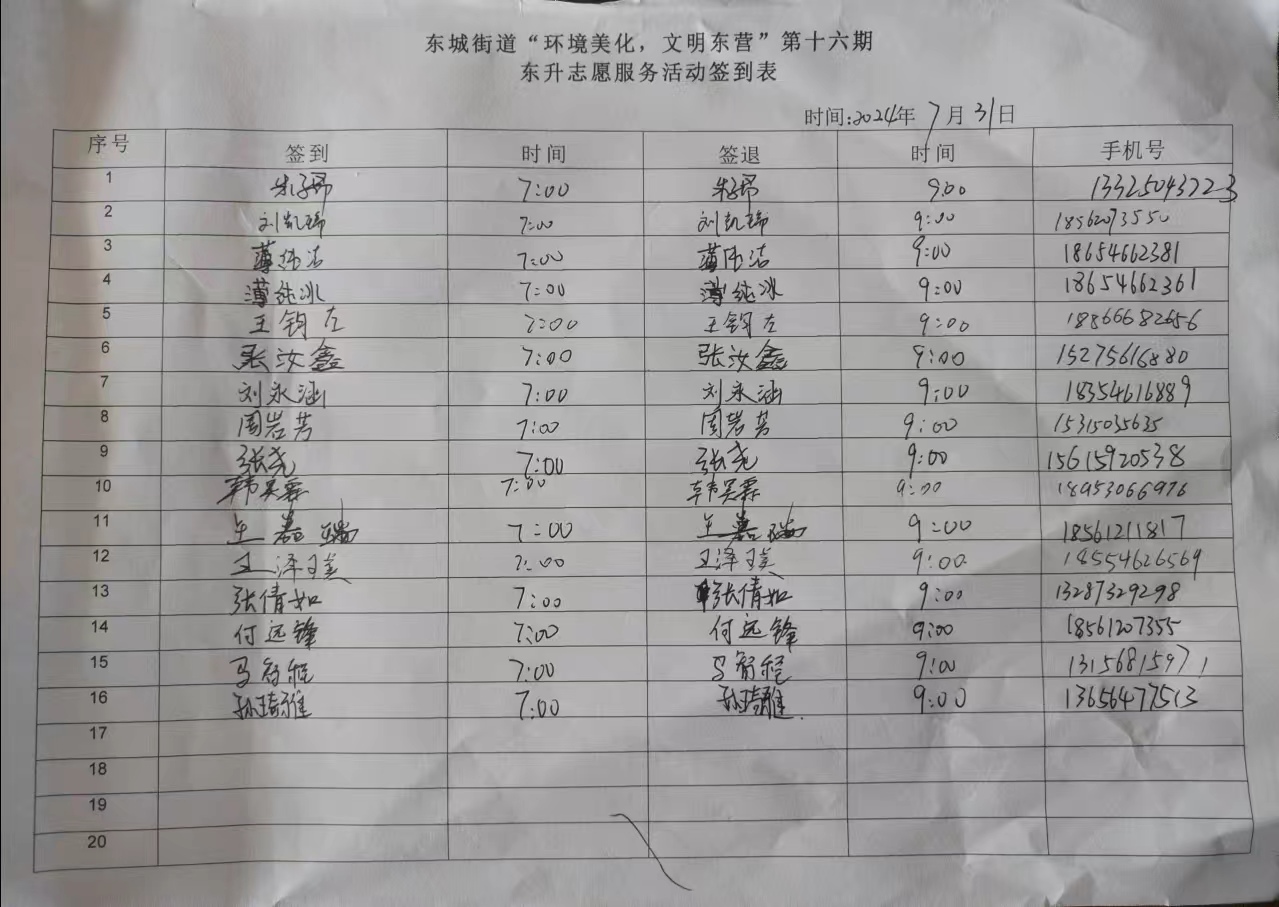 东城街道“环境美化，文明东营”第十六期
东升志愿服务活动签到表
时间:2024年 7月31日
序号 签到 时间 签退 时间 手机号
1 朱子昂 7:00 朱子昂 9:00 13325043723
2 刘凯瑞 7:00 刘凯瑞 9:00 18562073550
3 薄伟洁 7:00 薄伟洁 9:00 18654662381
4 薄纯冰 7:00 薄纯冰 9:00 18654662361
5 王钧左 7:00 王钧左 9:00 18866682656
6 张汝鑫 7:00 张汝鑫 9:00 15275616880
7 刘永涵 7:00 刘永涵 9:00 18354616889
8 周岩芳 7:00 周岩芳 9:00 15315035635
9 张尧 7:00 张尧 9:00 15615920538
10 韩昊霖 7:00 韩昊霖 9:00 18953066976
11 王嘉瑞 7:00 王嘉瑞 9:00 18561211817
12 王泽璞 7:00 王泽璞 9:00 18554626569
13 张倩如 7:00 张倩如 9:00 13287329298
14 付远锋 7:00 付远锋 9:00 18561207355
15 马智程 7:00 马智程 9:00 13156815971
16 孙琦雅 7:00 孙琦雅 9:00 13656477513
17
18
19
20